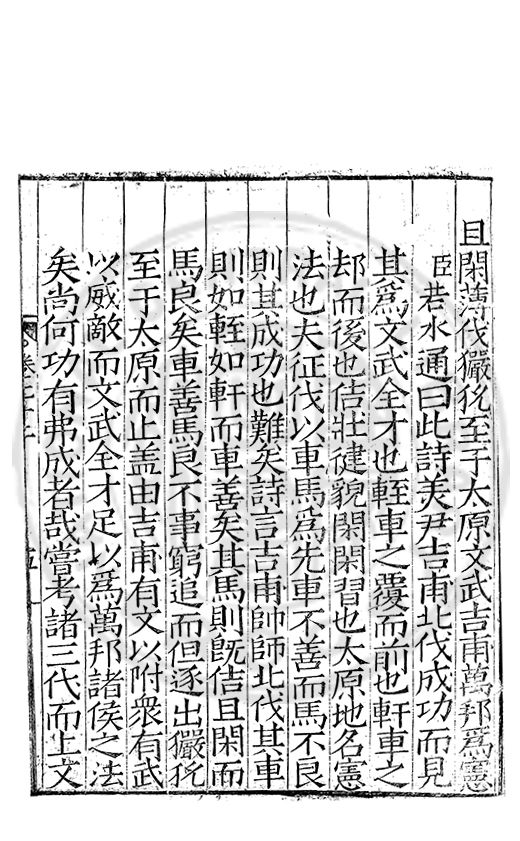 且閑薄伐玁狁至于太原文武吉甫萬邦為憲
臣若水通曰此詩美尹吉甫北伐成功而見
其為文武全才也輊車之覆而前也軒車之
却而後也佶壯健貌閑閑習也太原地名憲
法也夫征伐以車馬為先車不善而馬不良
則其成功也難矣詩言吉甫帥師北伐其車
則如輊如軒而車善矣其馬則既佶且閑而
馬良矣車善馬良不事窮追而但逐出玁狁
至于太原而止盖由吉甫有文以附衆有武
以威敵而文武全才足以為萬邦諸侯之法
矣尚何功有弗成者哉嘗考諸三代而上文